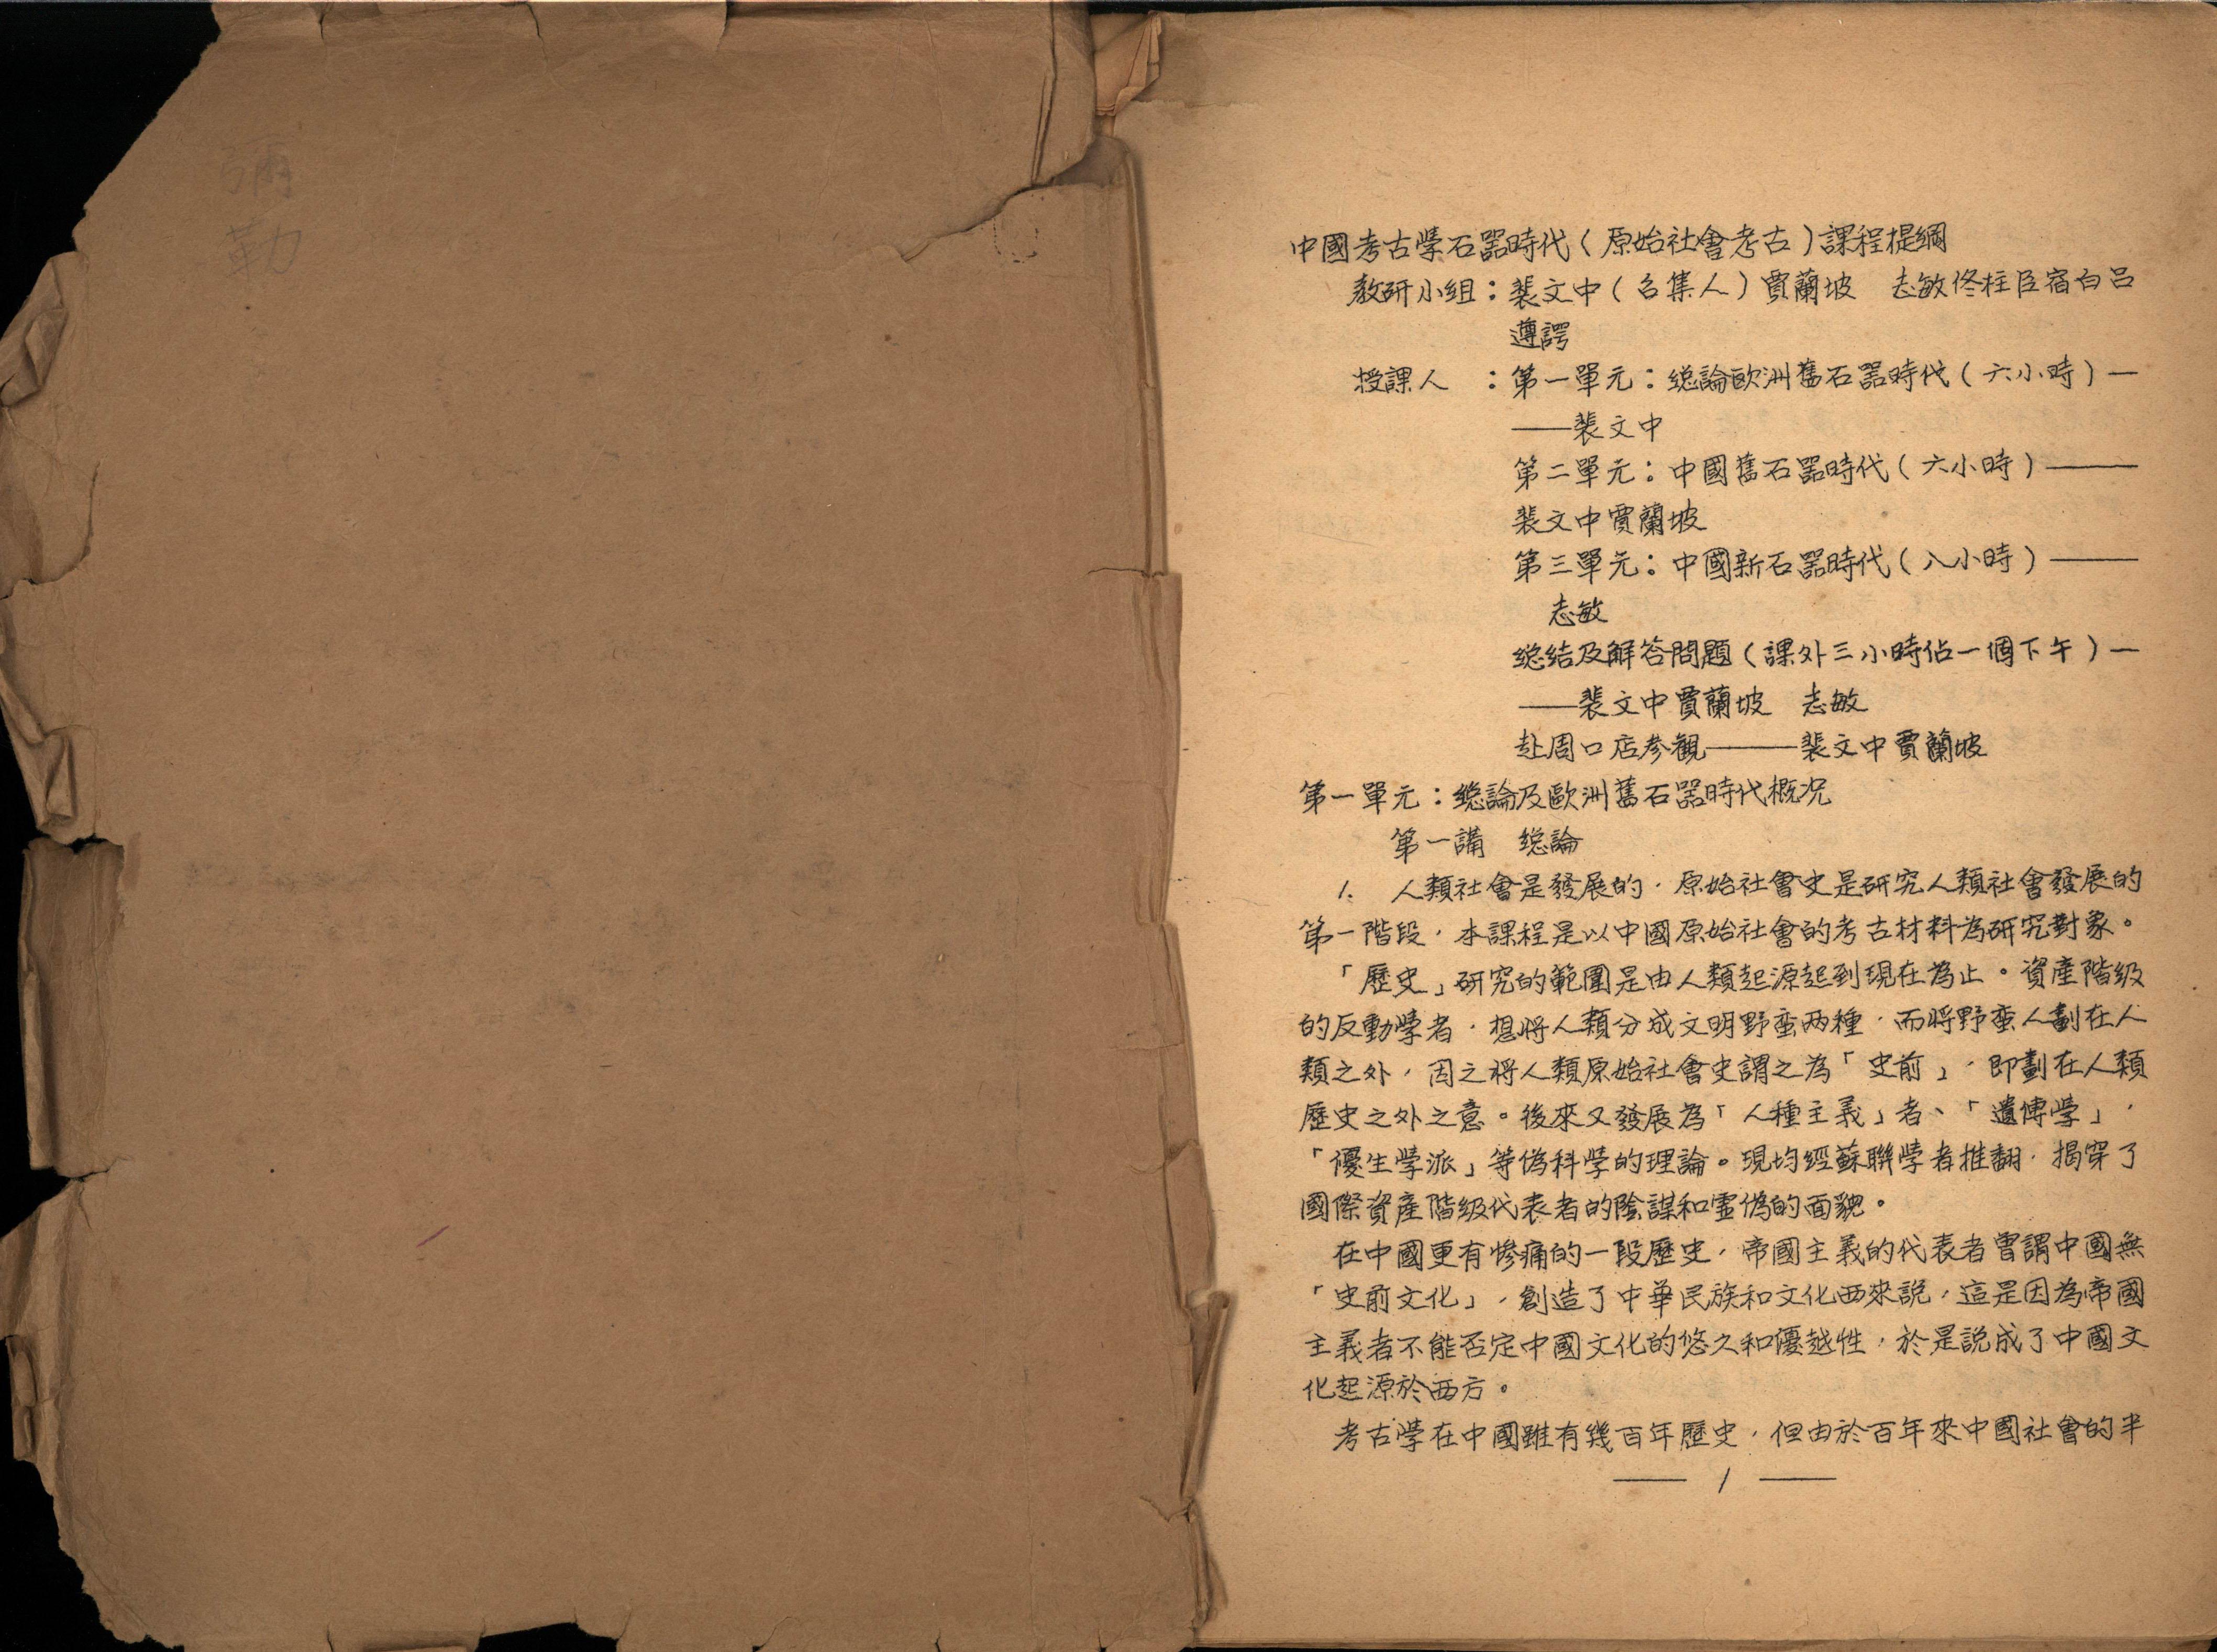 彌
勒
中國考古學石器時代（原始社會考古）課程提綱
教研小組：裴文中（召集人）賈蘭坡　志敏佟柱臣宿白呂
遵諤
授課人　：第一單元：總論歐洲舊石器時代（六小時）—
——裴文中
第二單元：中國舊石器時代（六小時）———
裴文中賈蘭坡
第三單元：中國新石器時代（八小時）———
志敏
總結及解答問題（課外三小時佔一個下午）—
——裴文中賈蘭坡　志敏
赴周口店参觀———裴文中賈蘭坡
第一單元：總論及歐洲舊石器時代概况
第一講　總論
1.　人類社會是發展的，原始社會史是研究人類社會發展的
第一階段，本課程是以中國原始社會的考古材料為研究對象。
「歷史」研究的範圍是由人類起源起到現在為止。資產階級
的反動學者，想将人類分成文明野蛮两種，而将野蛮人劃在人
類之外，因之将人類原始社會史謂之為「史前」，即劃在人類
歷史之外之意。後來又發展為「人種主義」者、「遺傳學」，
「優生學派」等偽科學的理論。現均經蘇聯學者推翻，揭穿了
國際資產階級代表者的陰謀和虛偽的面貌。
在中國更有惨痛的一段歷史，帝國主義的代表者曾謂中國無
「史前文化」，創造了中華民族和文化西來説，這是因為帝國
主義者不能否定中國文化的悠久和優越性，於是説成了中國文
化起源於西方。
考古學在中國雖有幾百年歷史，但由於百年來中國社會的半
—— 1 ——